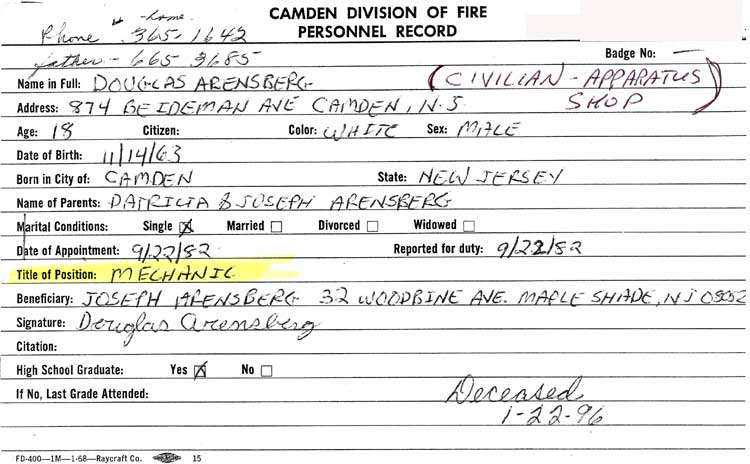 CAMDEN DIVISION OF FIRE
PERSONNEL RECORD
-home
Phone 365-1642
father - 665 3685
Badge No: —
Name in Full: DOUGLAS ARENSBERG
(CIVILIAN - APPARATUS SHOP)
Address: 874 BEIDEMAN AVE CAMDEN, N.J
Age: 18 Citizen: Color: WHITE Sex: MALE
Date of Birth: 11/14/63
Born in City of: CAMDEN State: NEW JERSEY
Name of Parents: PATRICIA & JOSEPH ARENSBERG
Marital Conditions: Single ☒ Married ☐ Divorced ☐ Widowed ☐
Date of Appointment: 9/22/82 Reported for duty: 9/22/82
Title of Position: MECHANIC
Beneficiary: JOSEPH ARENSBERG 32 WOODBINE AVE. MAPLE SHADE, NJ 08052
Signature: Douglas Arensberg
Citation:
High School Graduate: Yes ☒ No ☐
If No, Last Grade Attended:
Deceased
1-22-96
FD-400—1M—1-68—Raycraft Co. 15